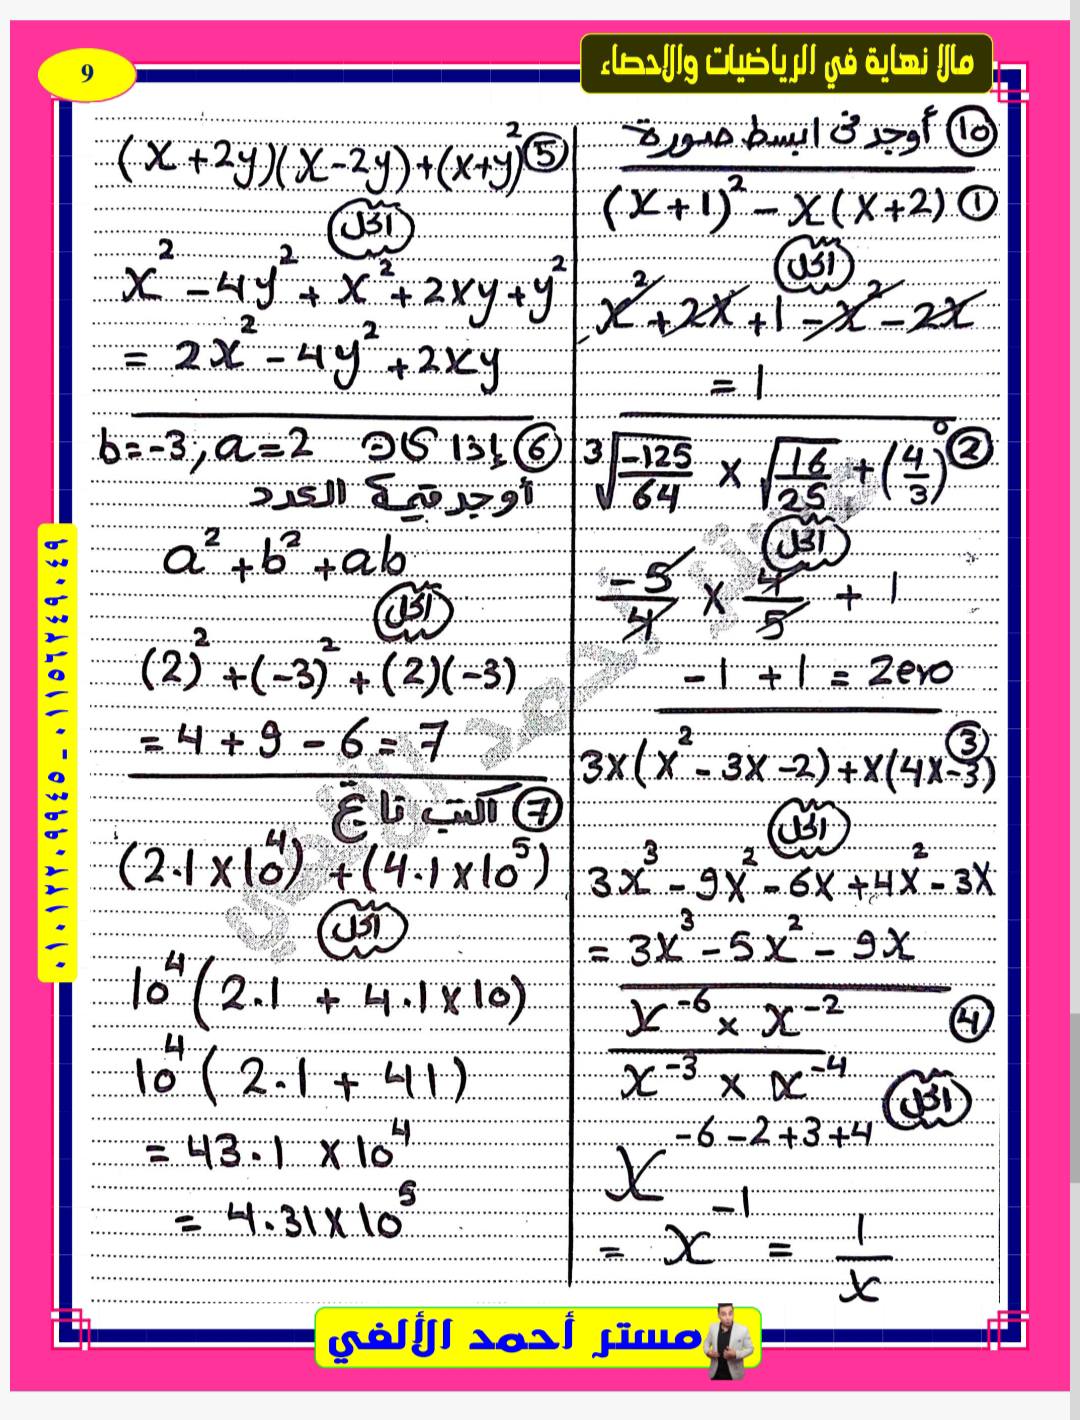 مالا نهاية في الرياضيات والاحصاء
9
10 أوجد فى ابسط صورة
① (x+1)² - x(x+2)
الحل
x² + 2x + 1 - x² - 2x
= 1
② ³√(-125/64) × √(16/25) + (4/3)⁰
الحل
-5/4 × 4/5 + 1
-1 + 1 = Zero
③ 3x(x² - 3x - 2) + x(4x-3)
الحل
3x³ - 9x² - 6x + 4x² - 3x
= 3x³ - 5x² - 9x
④ x⁻⁶ × x⁻² / x⁻³ × x⁻⁴
الحل
x⁻⁶⁻²⁺³⁺⁴
= x⁻¹ = 1/x
⑤ (x+2y)(x-2y)+(x+y)²
الحل
x² - 4y² + x² + 2xy + y²
= 2x² - 4y² + 2xy
⑥ إذا كان a=2 , b=-3
أوجد قيمة العدد
a² + b² + ab
الحل
(2)² + (-3)² + (2)(-3)
= 4 + 9 - 6 = 7
⑦ اكتب ناتج
(2.1 × 10⁴) + (4.1 × 10⁵)
الحل
10⁴(2.1 + 4.1 × 10)
10⁴(2.1 + 41)
= 43.1 × 10⁴
= 4.31 × 10⁵
٠١٠١٢٢٠٩٩٤٥ - ٠١١٥٦٢٤٩٠٤٩
مستر أحمد الألفي